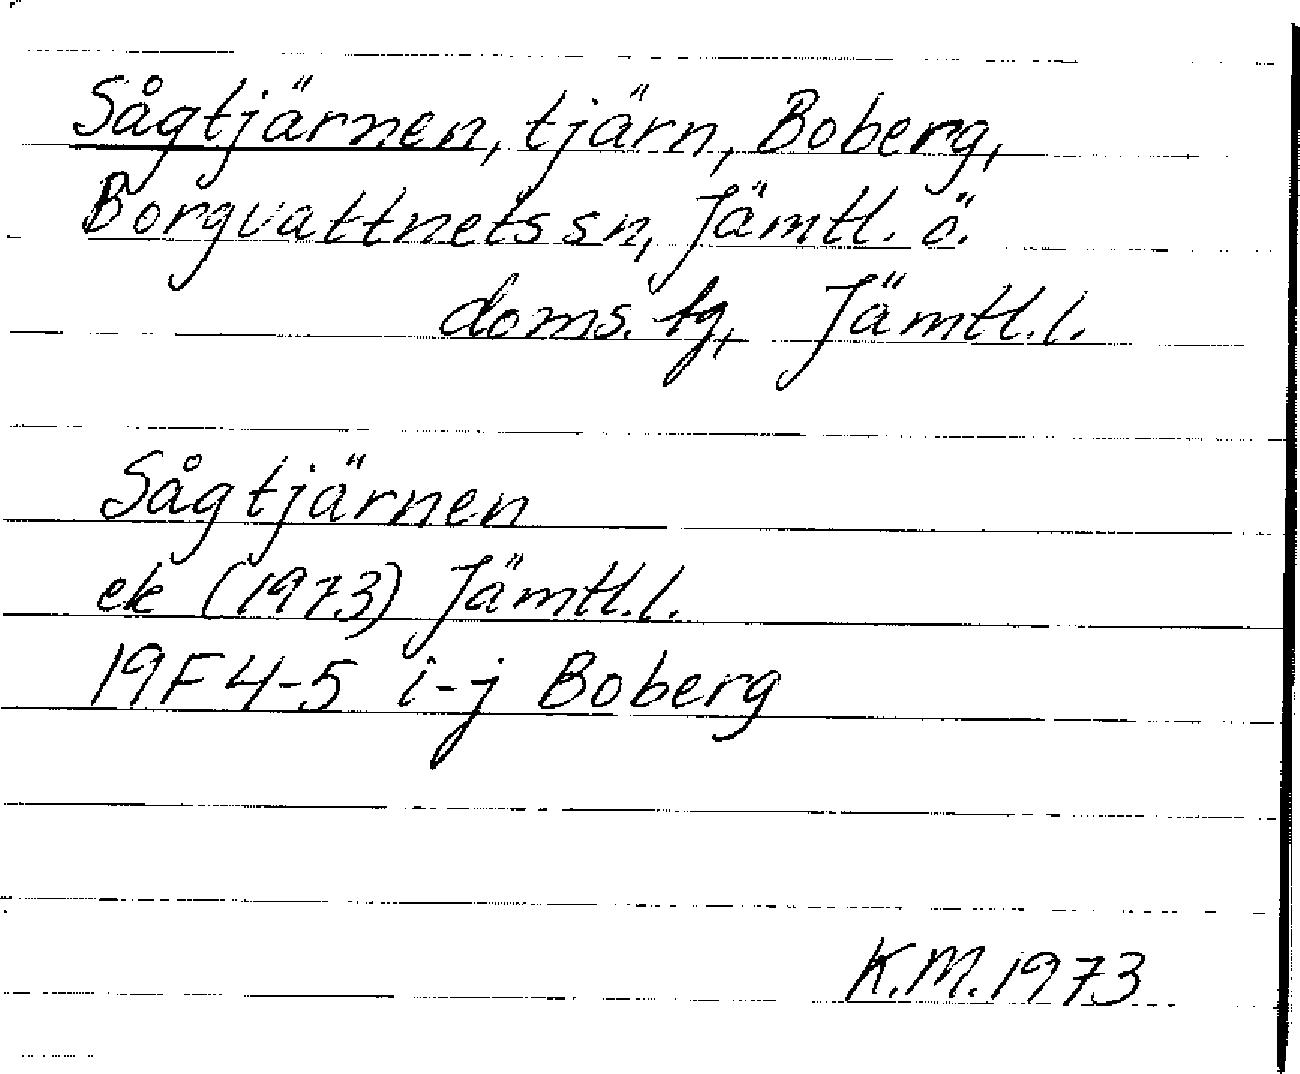 Sågtjärnen, tjärn, Boberg,
Borgvattnets sn, Jämtl. ö.
doms. tg, Jämtl. l.
Sågtjärnen
ek (1973) Jämtl. l.
19F 4-5 i-j Boberg
K.M. 1973